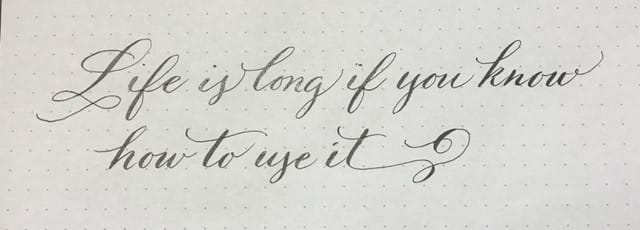 Life is long if you know
how to use it